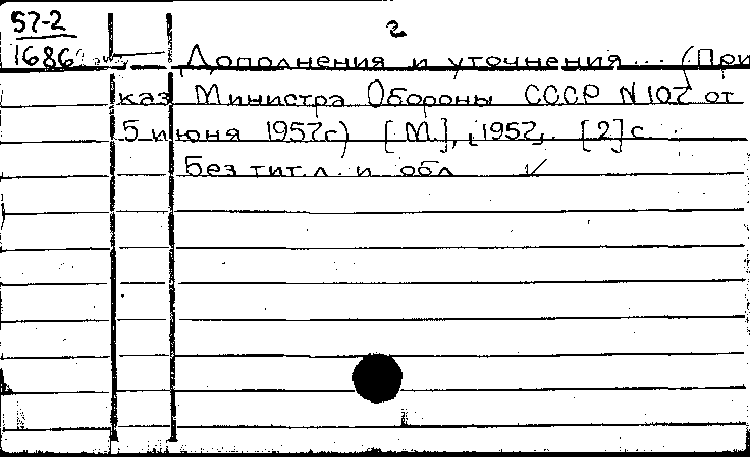 57-2
2
1686
Дополнения и уточнения... (При
каз Министра Обороны СССР N 107 от
5 июня 1957г) [М], [1957]. [2] с.
Без тит. л. и обл.